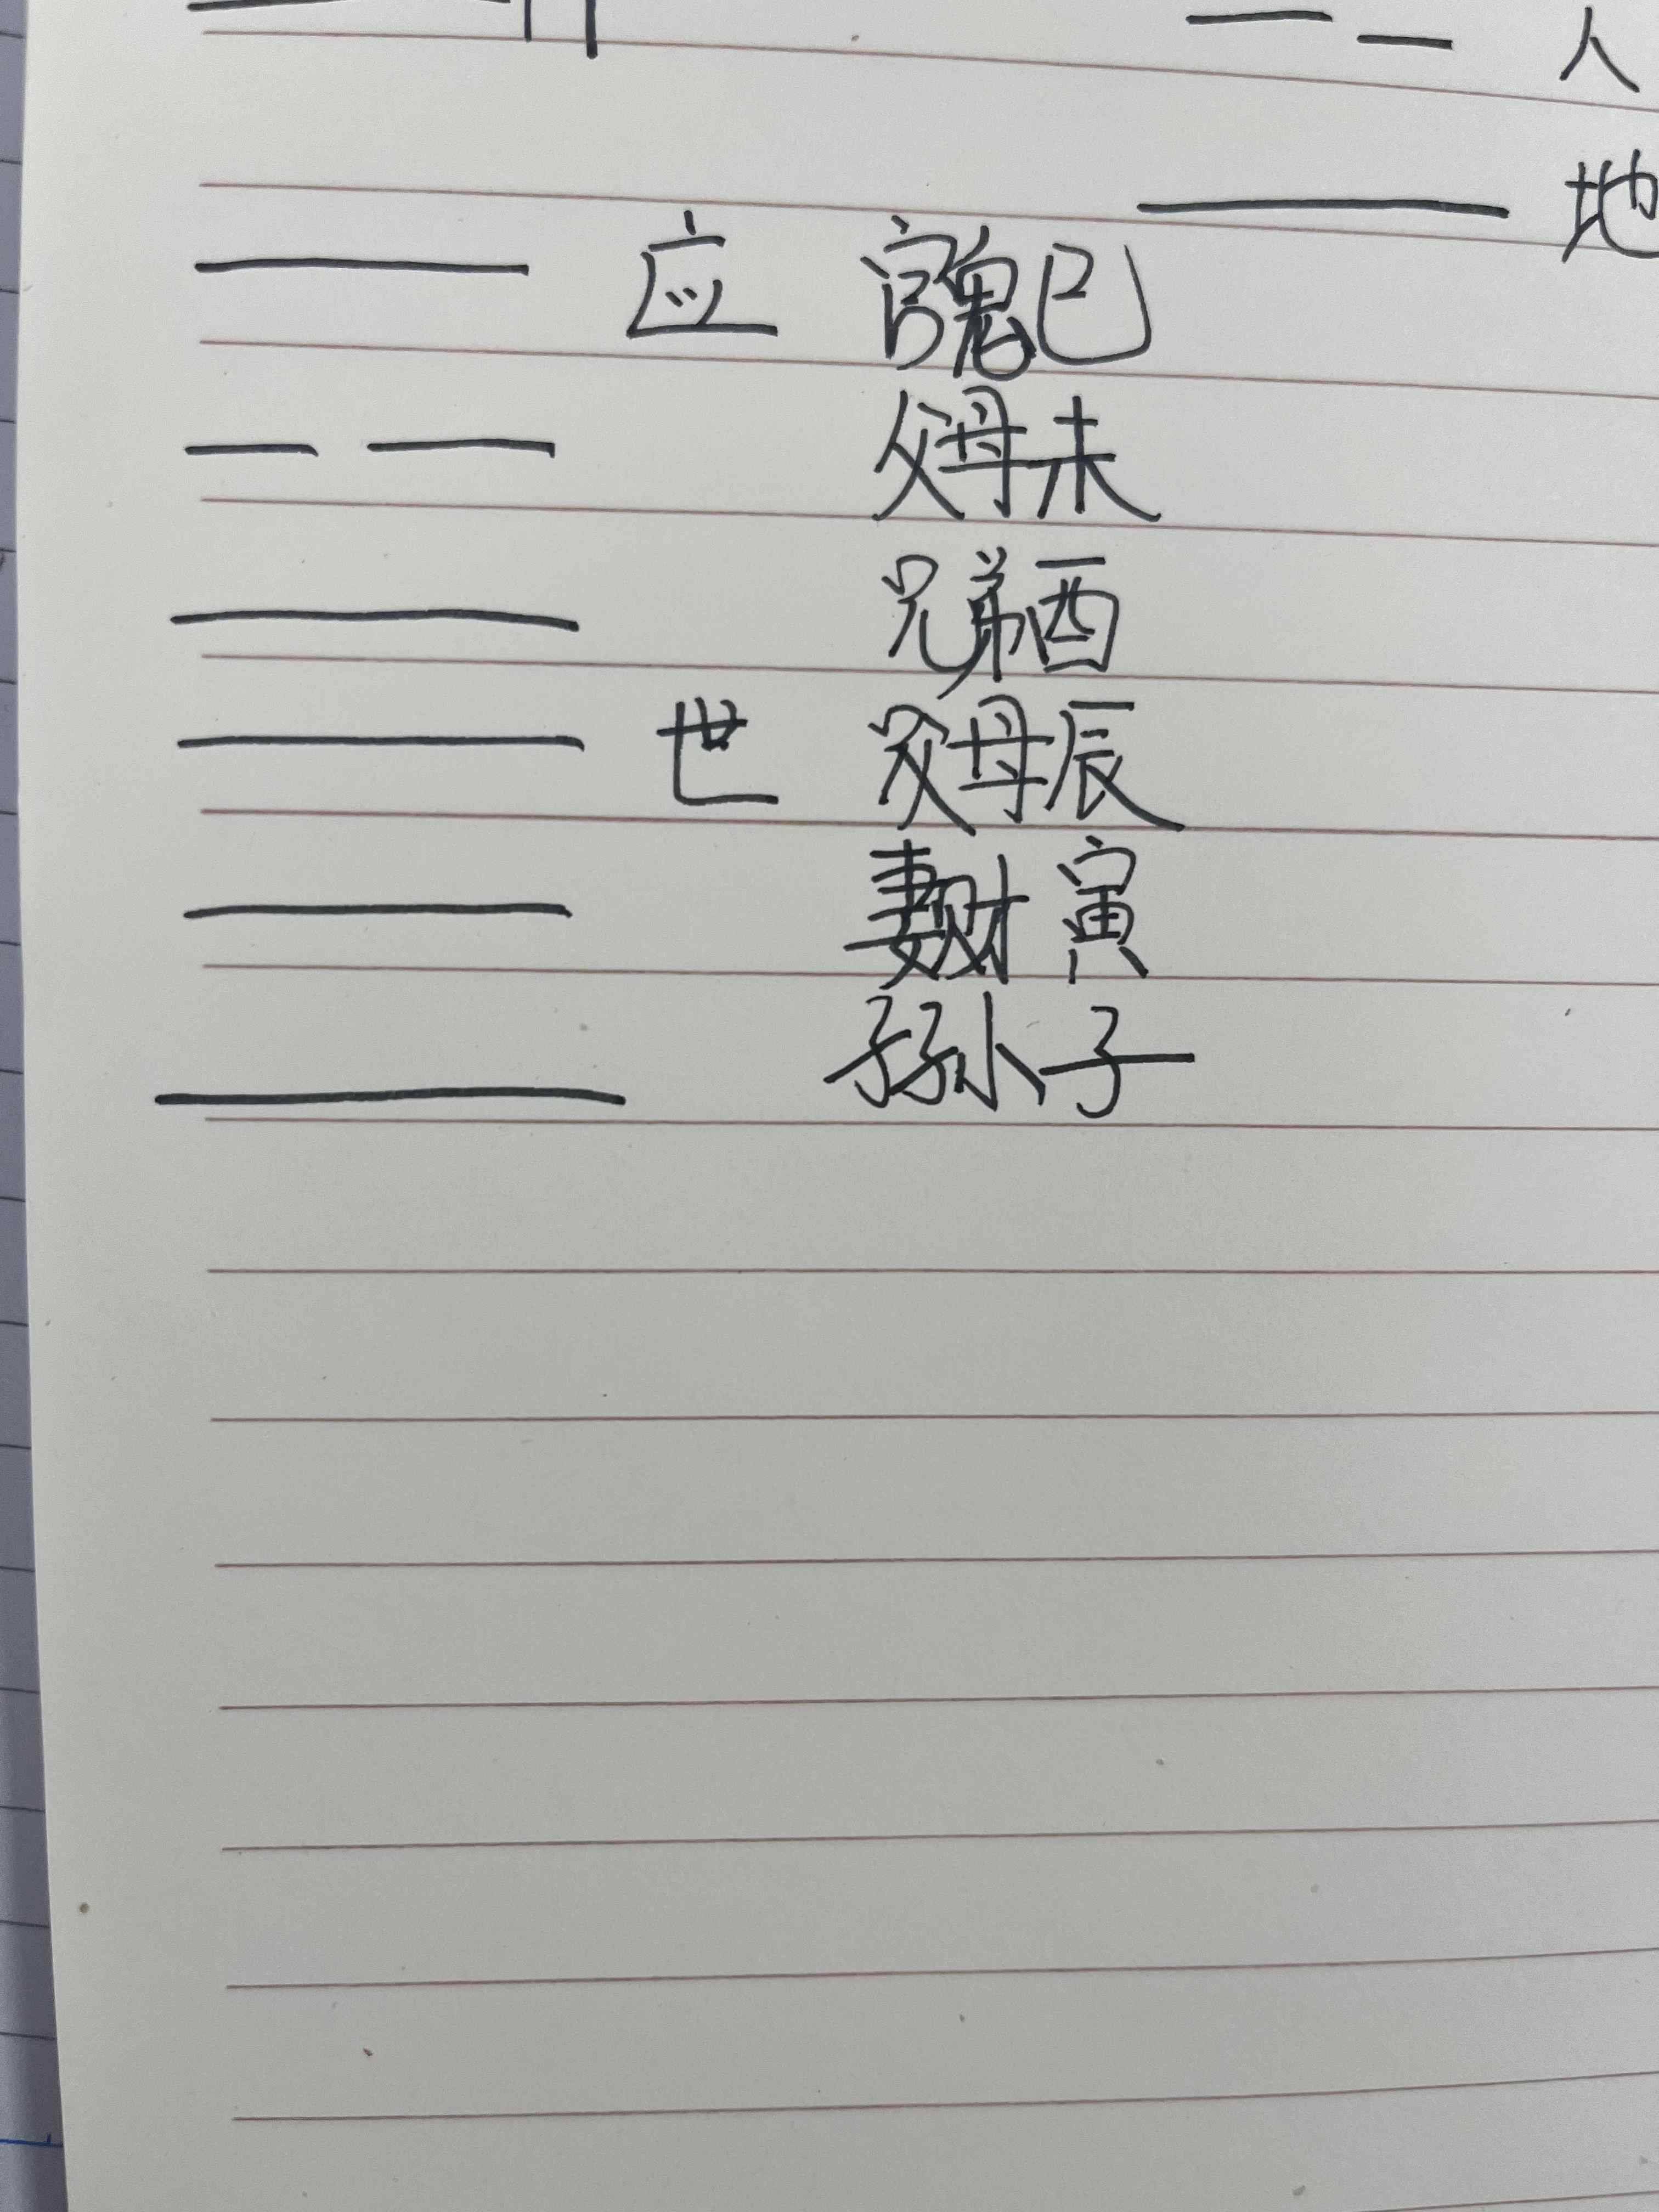 人
地
应 官鬼巳
父母未
兄弟酉
世 父母辰
妻财 寅
子孙 子